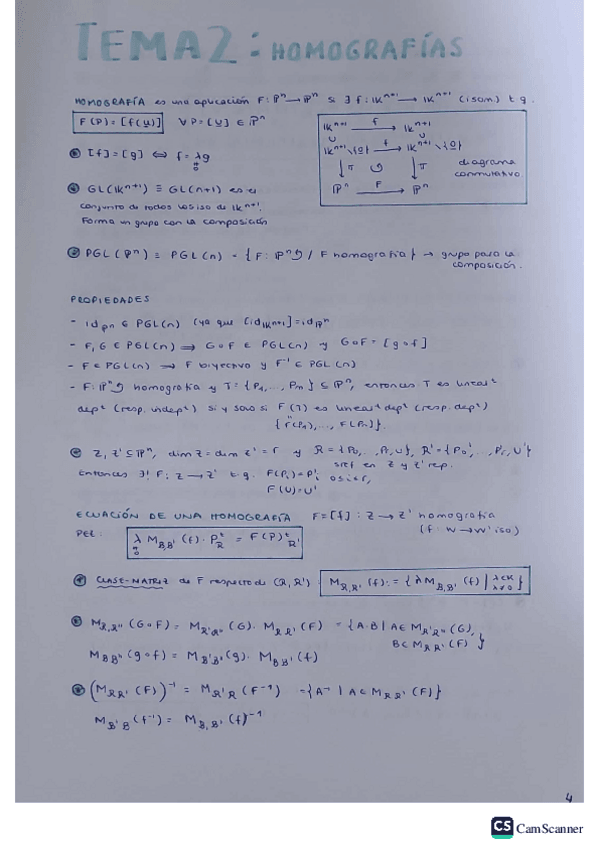 TEMA2: HOMOGRAFÍAS
HOMOGRAFÍA es una aplicación F: ℙⁿ → ℙⁿ si ∃ f: 𝕂ⁿ⁺¹ → 𝕂ⁿ⁺¹ (isom.) t.q.
F(P) = [f(u)] ∀P=[u] ∈ ℙⁿ
𝕂ⁿ⁺¹ f→ 𝕂ⁿ⁺¹
∪ ∪
𝕂ⁿ⁺¹\{0} f→ 𝕂ⁿ⁺¹\{0}
↓π ↺ ↓π
ℙⁿ F→ ℙⁿ
diagrama
conmutativo.
[f]=[g] ⟺ f=λg
≠0
GL(𝕂ⁿ⁺¹) ≡ GL(n+1) es el
conjunto de todos los iso de 𝕂ⁿ⁺¹.
Forma un grupo con la composición
PGL(ℙⁿ) ≡ PGL(n) = {F: ℙⁿ↺ / F homografía} → grupo para la
composición.
PROPIEDADES
- id_ℙⁿ ∈ PGL(n) (ya que [id_𝕂ⁿ⁺¹]=id_ℙⁿ
- F, G ∈ PGL(n) ⟹ G∘F ∈ PGL(n) y G∘F=[g∘f]
- F ∈ PGL(n) ⟹ F biyectivo y F⁻¹ ∈ PGL(n)
- F: ℙⁿ↺ homografía y T={P₁,..., Pₘ} ⊆ ℙⁿ, entonces T es linealᵗ
depᵗ (resp. indepᵗ) si y solo si F(T) es linealᵗ depᵗ (resp. depᵗ)
{F(P₁),..., F(Pₘ)}.
Z, Z' ⊆ ℙⁿ, dim Z = dim Z' = r y R={P₀,..., Pᵣ, U}, R'={P₀',..., Pᵣ', U'}
sref en Z y Z' resp.
entonces ∃! F: Z → Z' t.q. F(Pᵢ)=Pᵢ' 0≤i≤r,
F(U)=U'
ECUACIÓN DE UNA HOMOGRAFÍA F=[f]: Z → Z' homografía
(f: W → W' iso)
P∈Z: λ M_B,B'(f) · P_Rᵗ = F(P)ᵗ_R'
≠0
CLASE-MATRIZ de F respecto de (R, R'): M_R,R'(f) := {λ M_B,B'(f) | λ∈𝕂 λ≠0}
M_R,R''(G∘F) = M_R'R''(G) · M_R,R'(F) = {A·B | A∈M_R'R''(G),
B∈M_R,R'(F)}
M_BB''(g∘f) = M_B'B''(g) · M_BB'(f)
(M_RR'(F))⁻¹ = M_R'R(F⁻¹) = {A⁻¹ | A∈M_RR'(F)}
M_B'B(f⁻¹) = M_B,B'(f)⁻¹
4
CS CamScanner